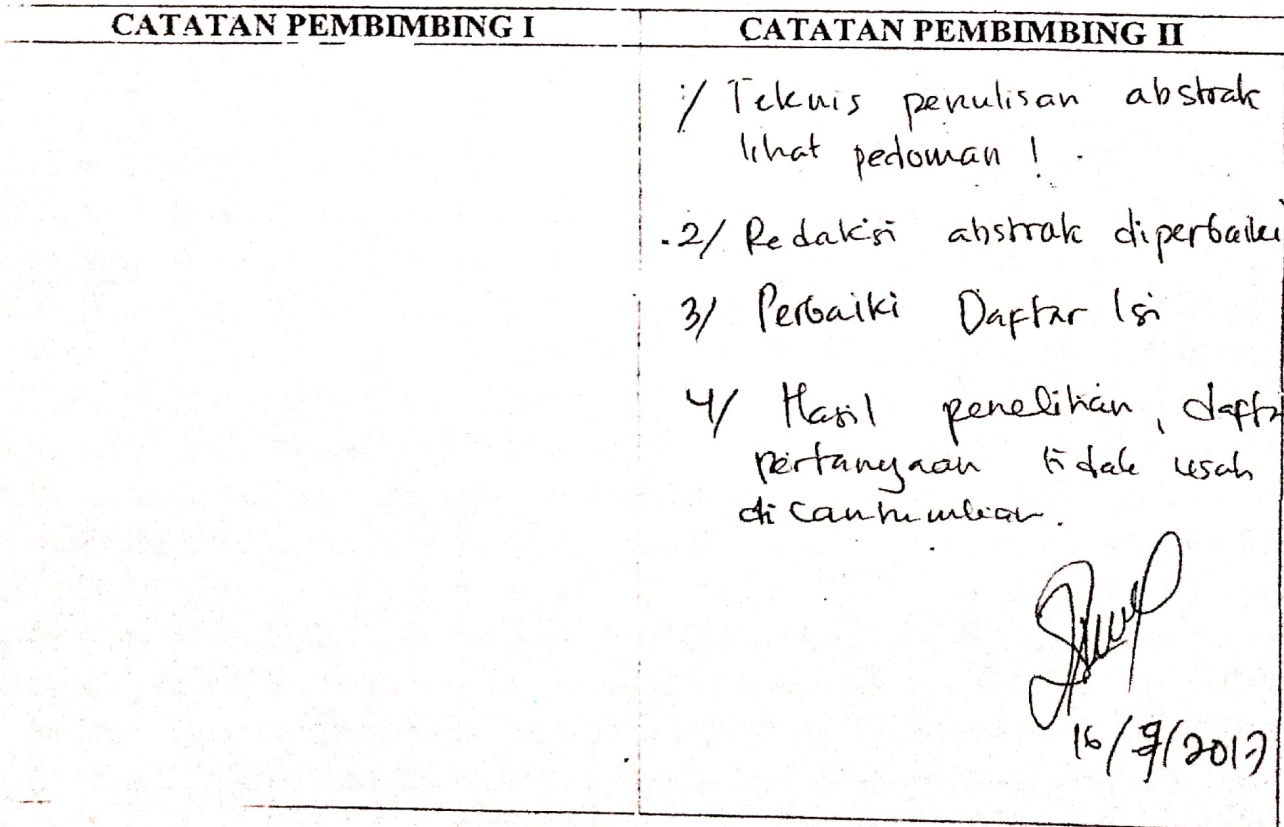 CATATAN PEMBIMBING I
CATATAN PEMBIMBING II
1/ Teknis penulisan abstrak
lihat pedoman !
2/ Redaksi abstrak diperbaiki
3/ Perbaiki Daftar Isi
4/ Hasil penelitian, daft
pertanyaan tidak usah
dicantumkan.
16/ /2017